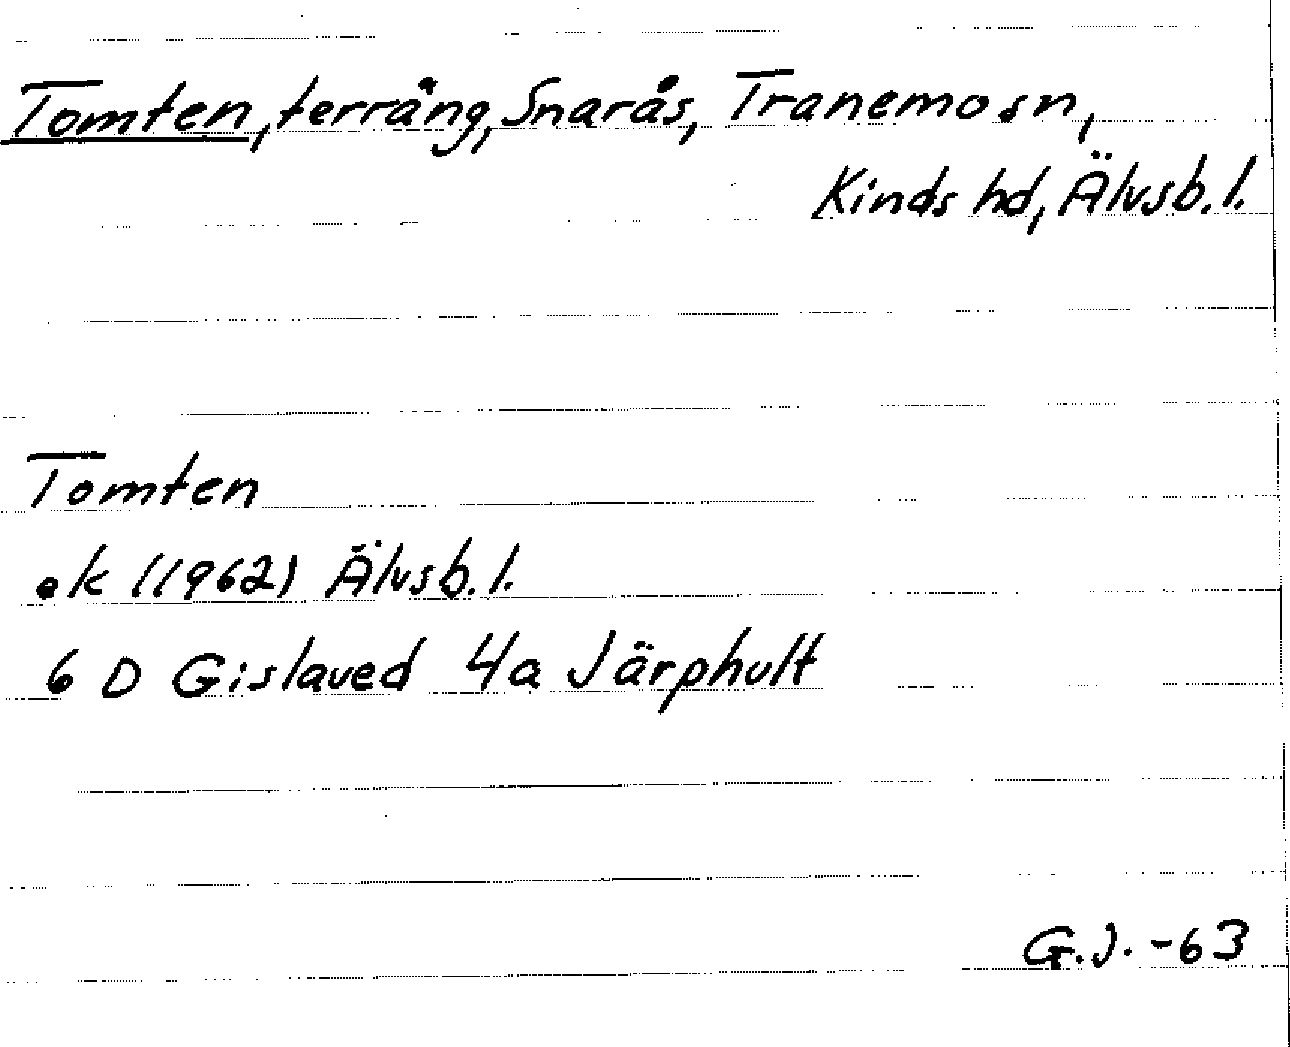 Tomten, terräng, Snarås, Tranemo sn,
Kinds hd, Älvsb. l.
Tomten
ek (1962) Älvsb. l.
6 D Gislaved 4a Järphult
G.J. -63